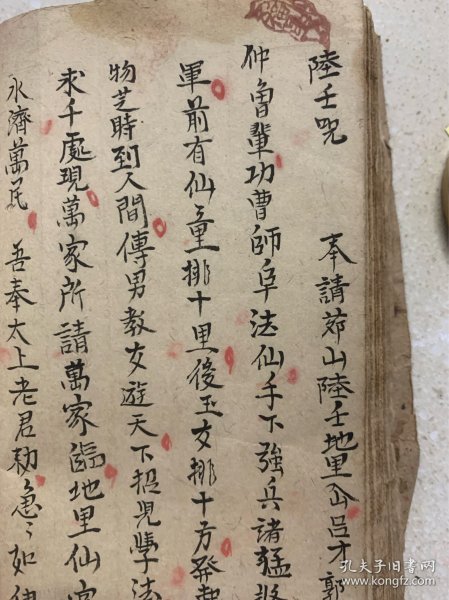 陸壬咒 奉請茆山陸壬地里仙吕才郭
仲魯軰功曹師阜法仙手下強兵諸猛將
軍前有仙童排十里後玉女排十方發
物芝時到人間傳男教女遊天下招児學法
求千處現萬家所請萬家臨地里仙
永濟萬民 吾奉太上老君勑急〻如律
孔夫子旧书网
www.kongfz.com